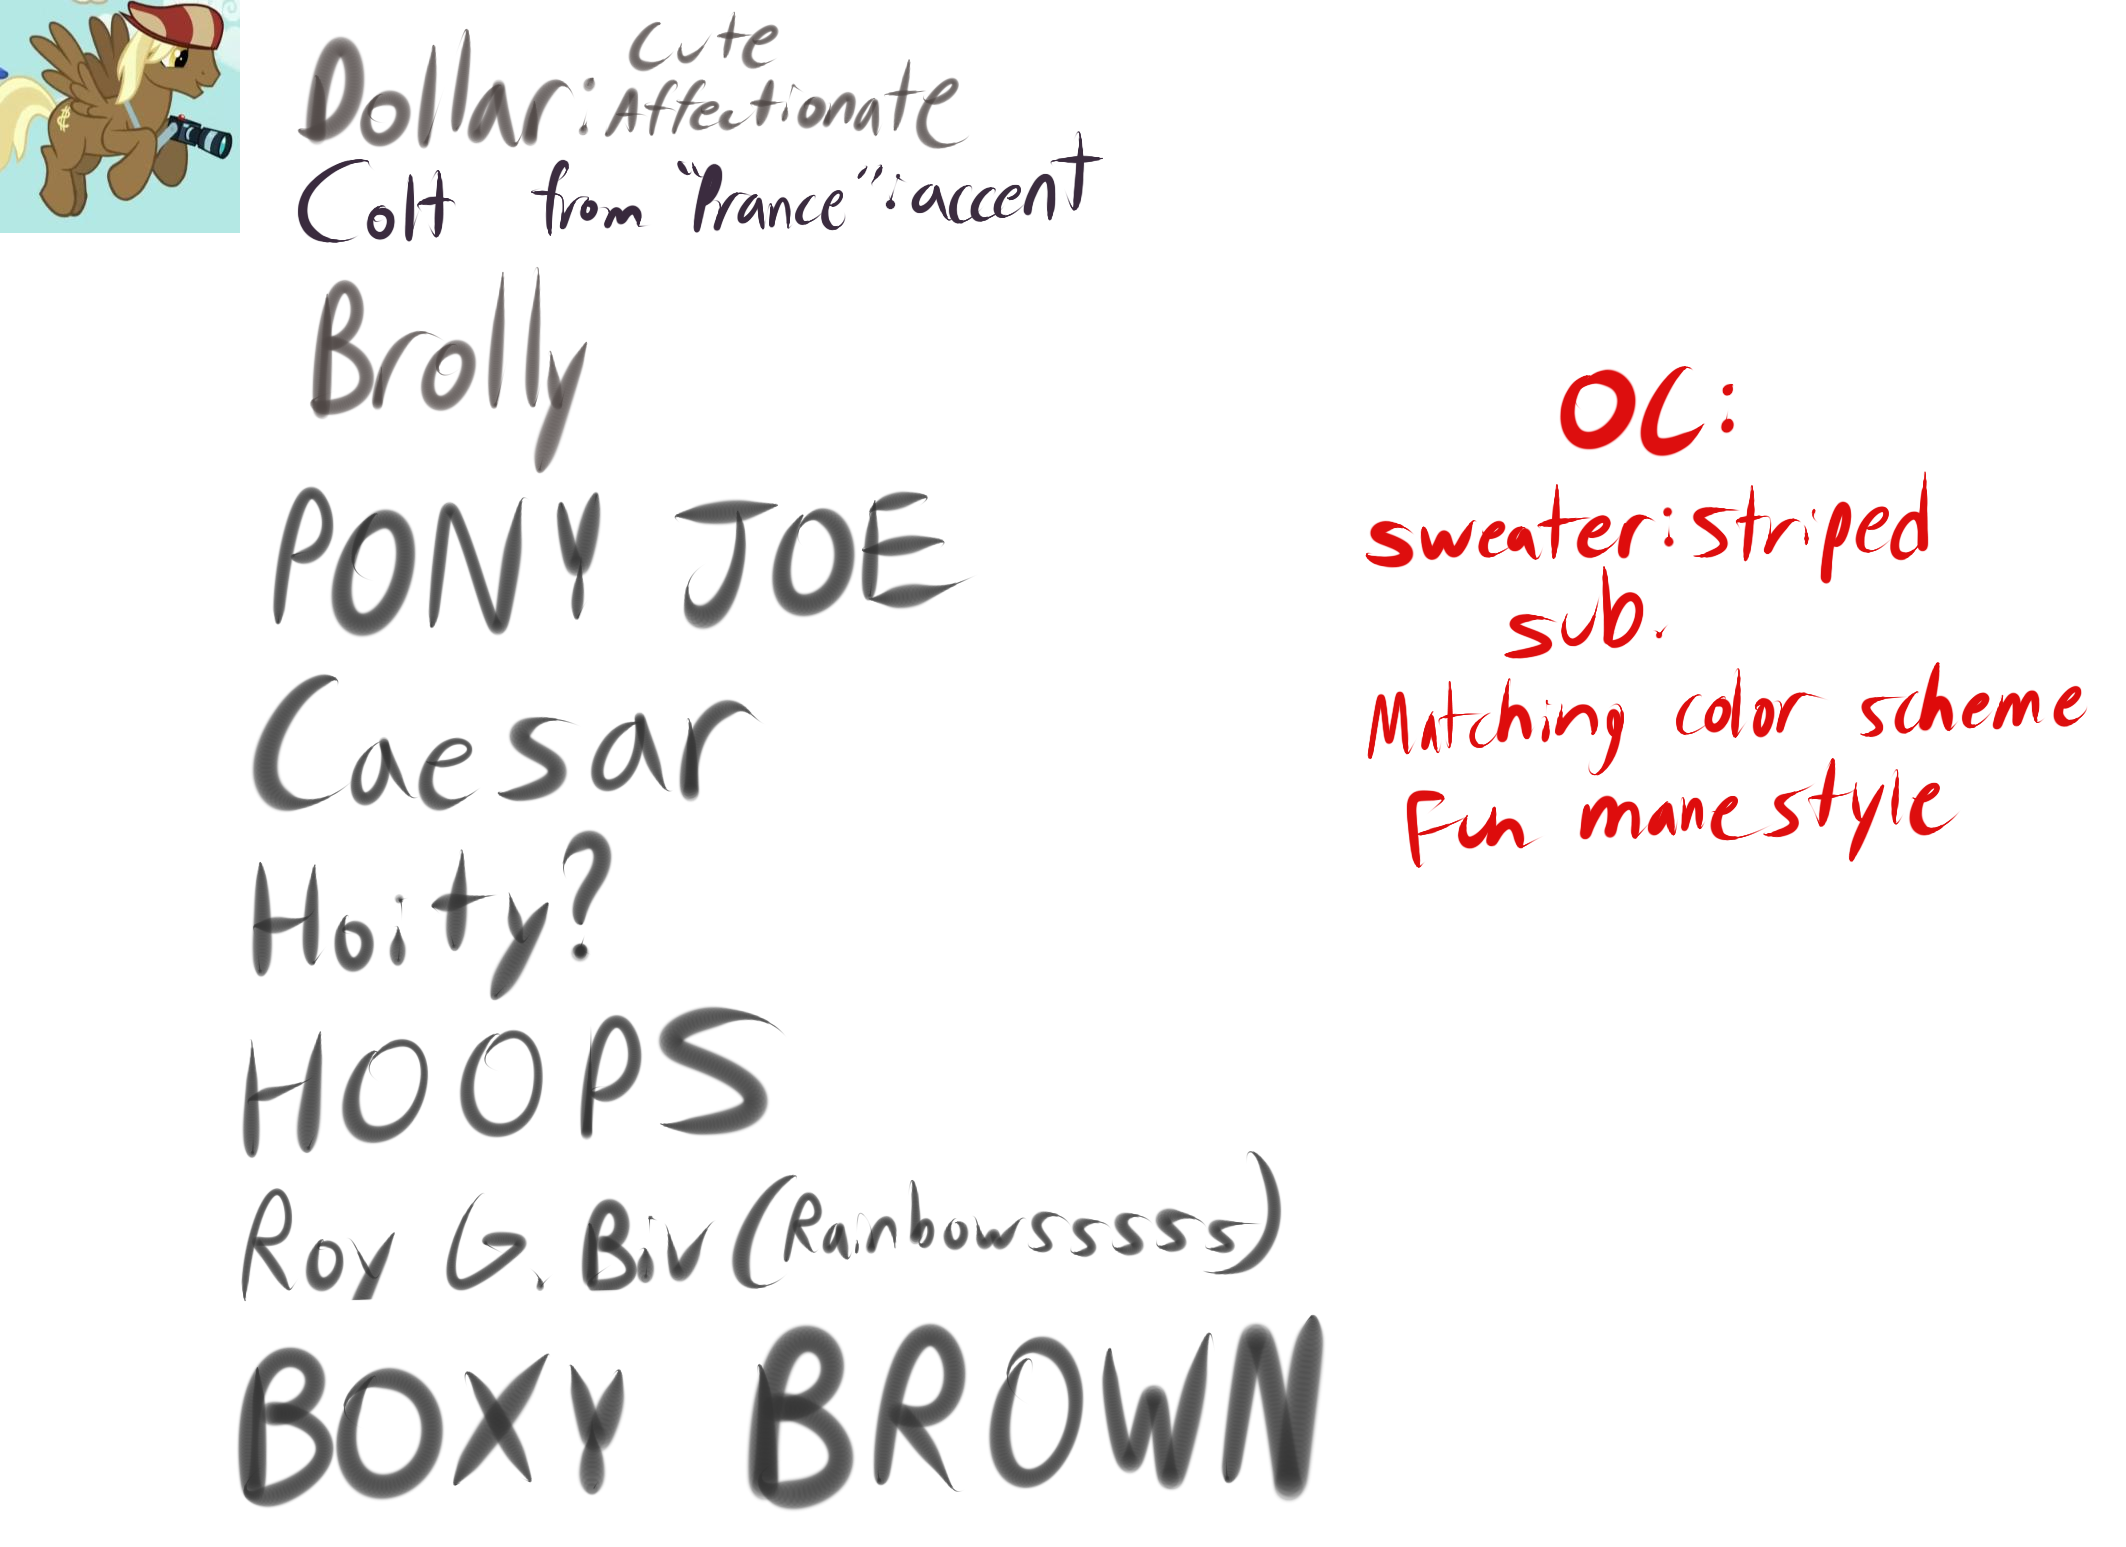 Dollar: Cute
Affectionate
Colt from "Prance": accent
Brolly
PONY JOE
Caesar
Hoity?
HOOPS
Roy G. Biv (Rainbowsssss)
BOXY BROWN
OC:
sweater: striped
sub.
Matching color scheme
Fun manestyle